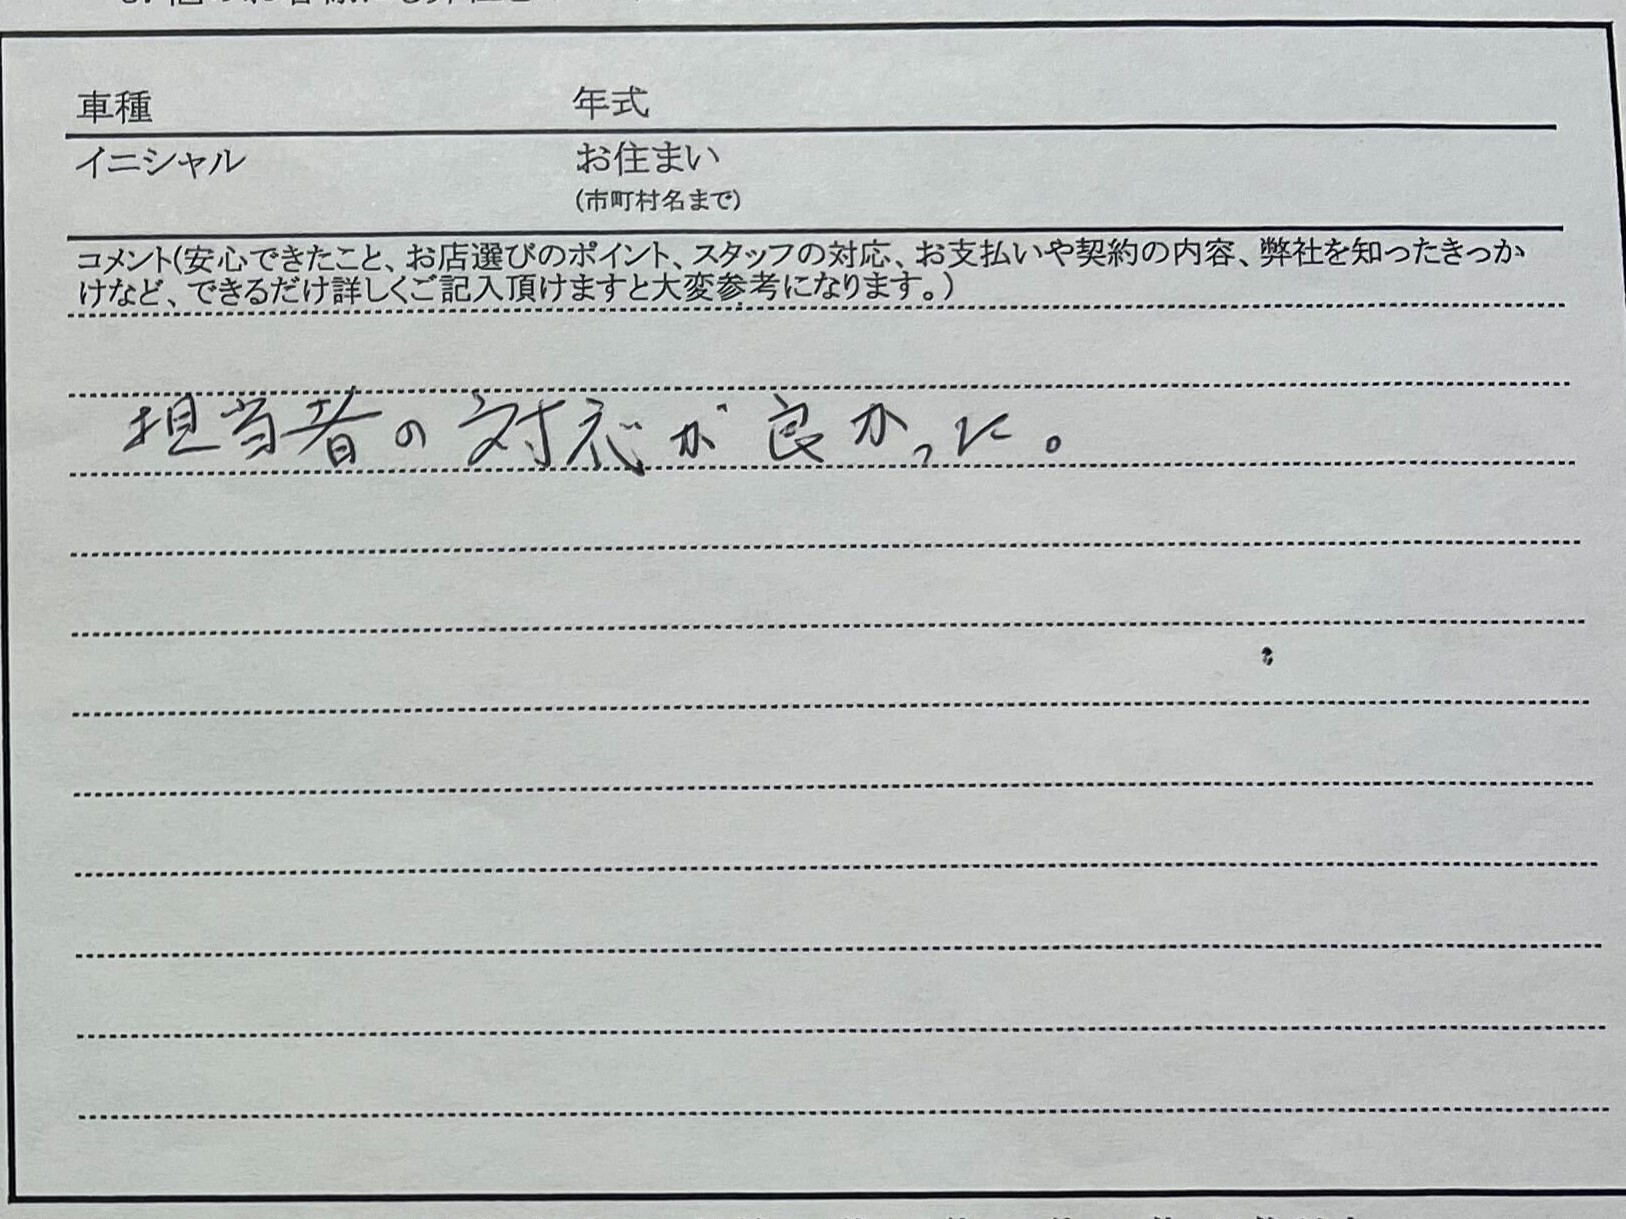 車種 年式
イニシャル お住まい
(市町村名まで)
コメント(安心できたこと、お店選びのポイント、スタッフの対応、お支払いや契約の内容、弊社を知ったきっか
けなど、できるだけ詳しくご記入頂けますと大変参考になります。)
担当者の対応が良かった。